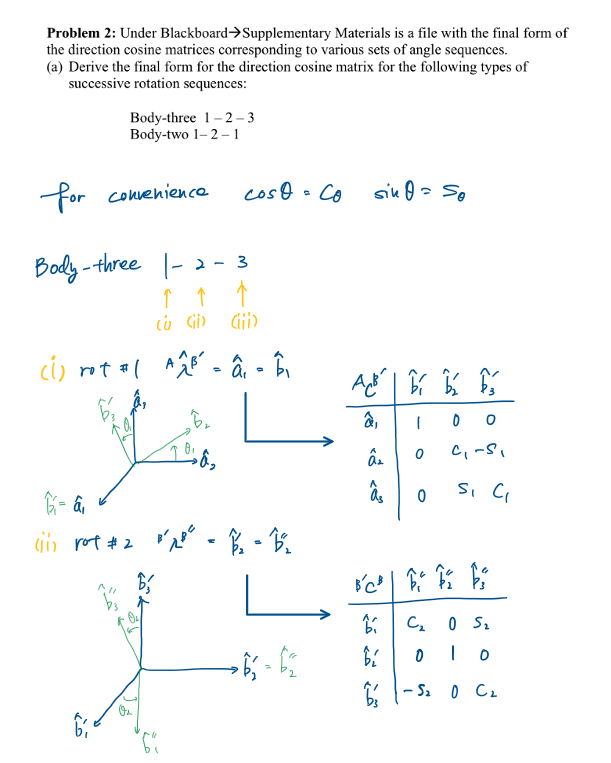 Problem 2: Under Blackboard→Supplementary Materials is a file with the final form of
the direction cosine matrices corresponding to various sets of angle sequences.
(a) Derive the final form for the direction cosine matrix for the following types of
successive rotation sequences:
Body-three 1 – 2 – 3
Body-two 1– 2 – 1
for convenience cosθ = Cθ sinθ = Sθ
Body-three 1 - 2 - 3
↑ ↑ ↑
(i) (ii) (iii)
(i) rot #1 ᴬλ̂ᴮ′ = â₁ = b̂₁
ᴬCᴮ′ b̂₁′ b̂₂′ b̂₃′
â₁ 1 0 0
â₂ 0 C₁ -S₁
â₃ 0 S₁ C₁
b̂₃′ â₃
θ₁ b̂₂
θ₁ â₂
b̂₁′ = â₁
(ii) rot #2 ᴮ′λᴮ″ = b̂₂′ = b̂₂″
ᴮ′Cᴮ b̂₁″ b̂₂″ b̂₃″
b̂₁′ C₂ 0 S₂
b̂₂′ 0 1 0
b̂₃′ -S₂ 0 C₂
b̂₃′
b̂₃″ θ₂
b̂₂′ = b̂₂″
θ₂
b̂₁′
b̂₁″